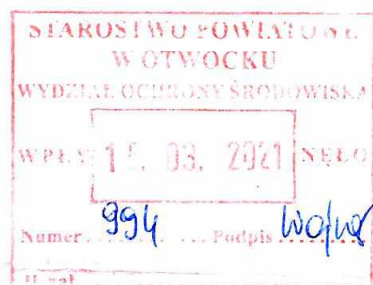 STAROSTWO POWIATOWE
W OTWOCKU
WYDZIAŁ OCHRONY ŚRODOWISKA
WPŁY 15. 03. 2021 NĘŁO
Numer 994 Podpis